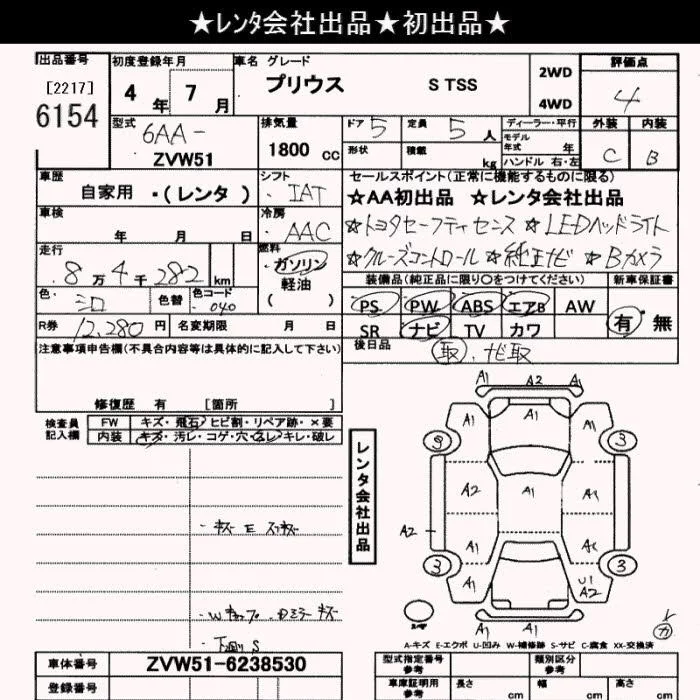 ★レンタ会社出品★初出品★
出品番号 初度登録年月 車名 グレード 評価点
[2217] 4年 7月 プリウス S TSS 2WD 4
6154 4WD
型式 排気量 ドア 5 定員 5人 ディーラー・平行 外装 内装
6AA- モデル年式 年
ZVW51 1800 cc 形状 積載 kg ハンドル 右・左 C B
車歴 シフト セールスポイント(正常に機能するものに限る)
自家用 ・(レンタ) IAT ★AA初出品 ★レンタ会社出品
車検 冷房 ☆トヨタセーフティセンス ☆LEDヘッドライト
年 月 日 AAC ☆クルーズコントロール ☆純正ナビ ☆Bカメラ
走行 燃料
8万4千282 km ガソリン 装備品(純正品に限り○をつけてください) 新車保証書
軽油
色 シロ 色替 色コード 040 ( ) PS PW ABS エアB AW 有・無
R券 12,280円 名変期限 月 日 SR ナビ TV カワ
注意事項申告欄(不具合内容等は具体的に記入して下さい) 後日品 取, ナビ取
修復歴 有 [箇所 ]
検査員記入欄 FW キズ・飛石・ヒビ割・リペア跡・×要
内装 キズ・汚レ・コゲ・穴・スレ・キレ・破レ
レンタ会社出品
A1 A2 A1
A1 A1
3 3
A2 A1 A1
A2
A1
3 3
U1
A2
A1 A1
A-キズ E-エクボ U-凹み W-補修跡 S-サビ C-腐食 XX-交換済
下廻り S
車体番号 ZVW51-6238530 型式指定番号 参考 類別区分 参考
登録番号 車庫証明用 参考 長さ cm 幅 cm 高さ cm